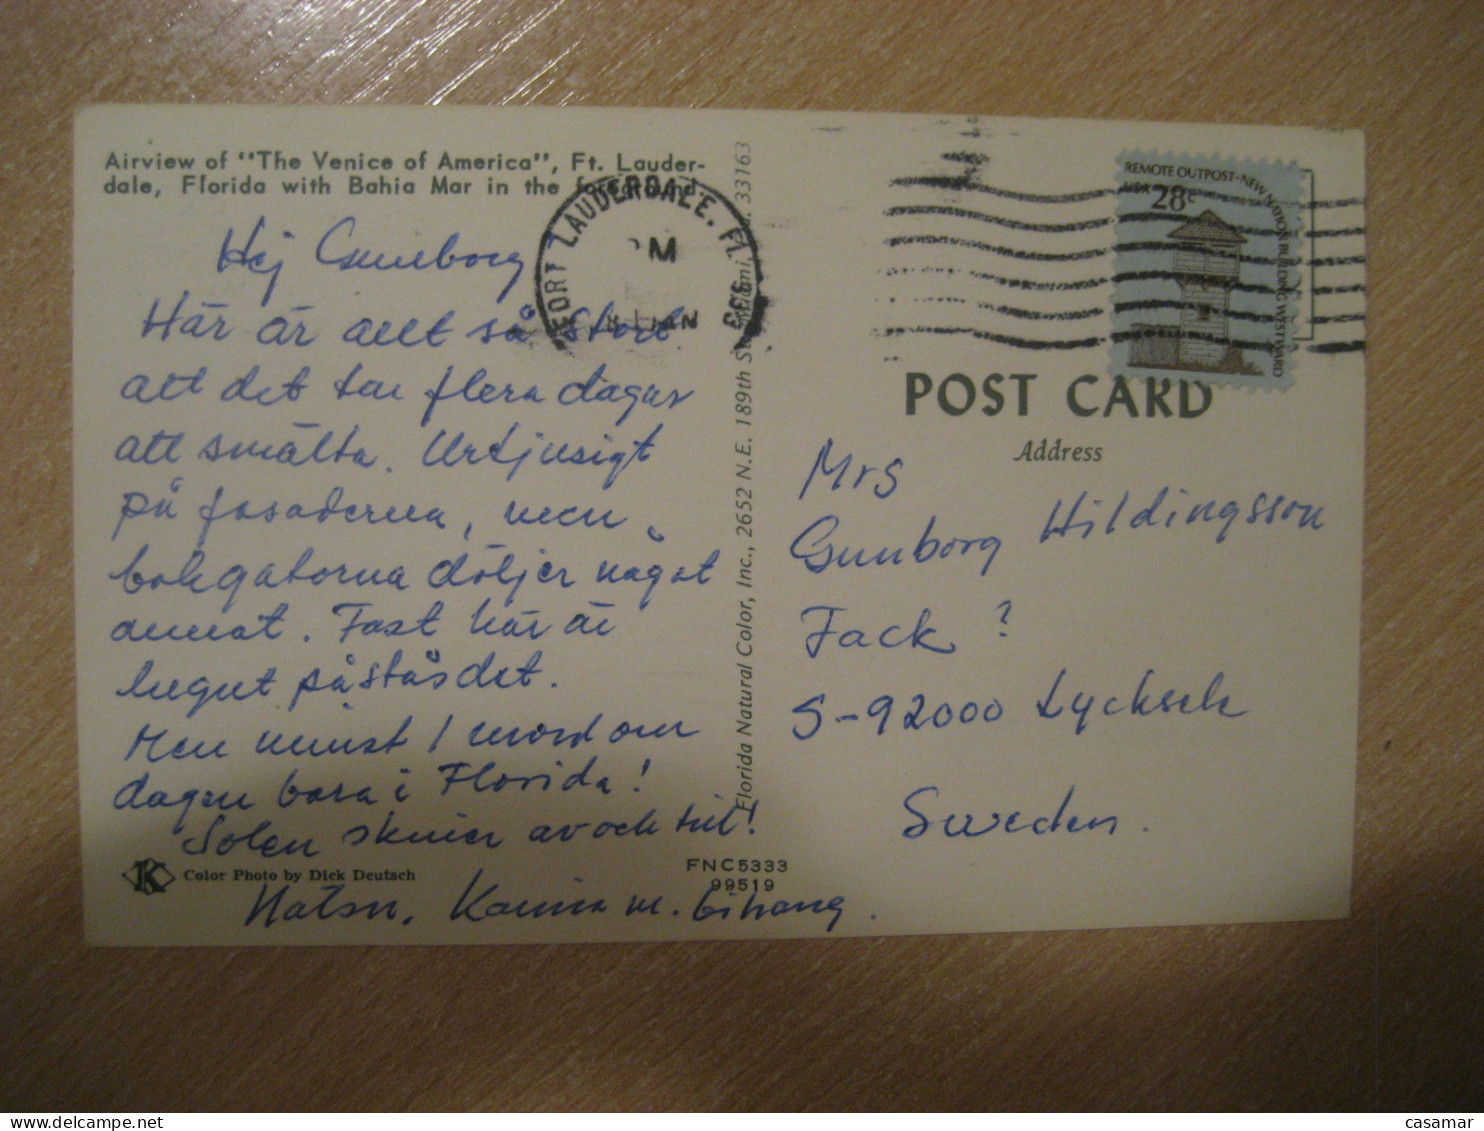 Airview of "The Venice of America", Ft. Lauder-
dale, Florida with Bahia Mar in the foreground.
Hej Gunborg
Här är allt så stort
att det tar flera dagar
att smälta. Urtjusigt
på fasaderna, men
bakgatorna döljer något
annat. Fast här är
lugnt påstås det.
Men minst 1 mord om
dagen bara i Florida!
Solen skiner av och till!
Karina m.
Color Photo by Dick Deutsch
K
FNC5333
99519
Florida Natural Color, Inc., 2652 N.E. 189th St., Miami, Fla. 33163
FORT LAUDERDALE, FL
333
PM
JAN
REMOTE OUTPOST-NEW NATION BUILDING WESTWARD
USA 28c
POST CARD
Address
Mrs
Gunborg Hildingsson
Fack ?
S-92000 Lycksele
Sweden.
casamar